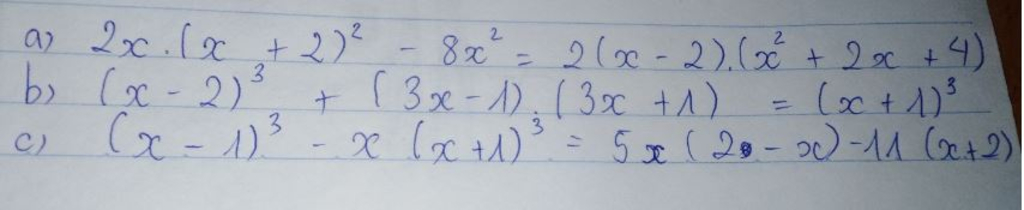 a) 2x.(x + 2)² - 8x² = 2(x - 2).(x² + 2x + 4)
b) (x - 2)³ + (3x - 1).(3x + 1) = (x + 1)³
c) (x - 1)³ - x (x + 1)³ = 5x (2 - x) - 11 (x + 2)